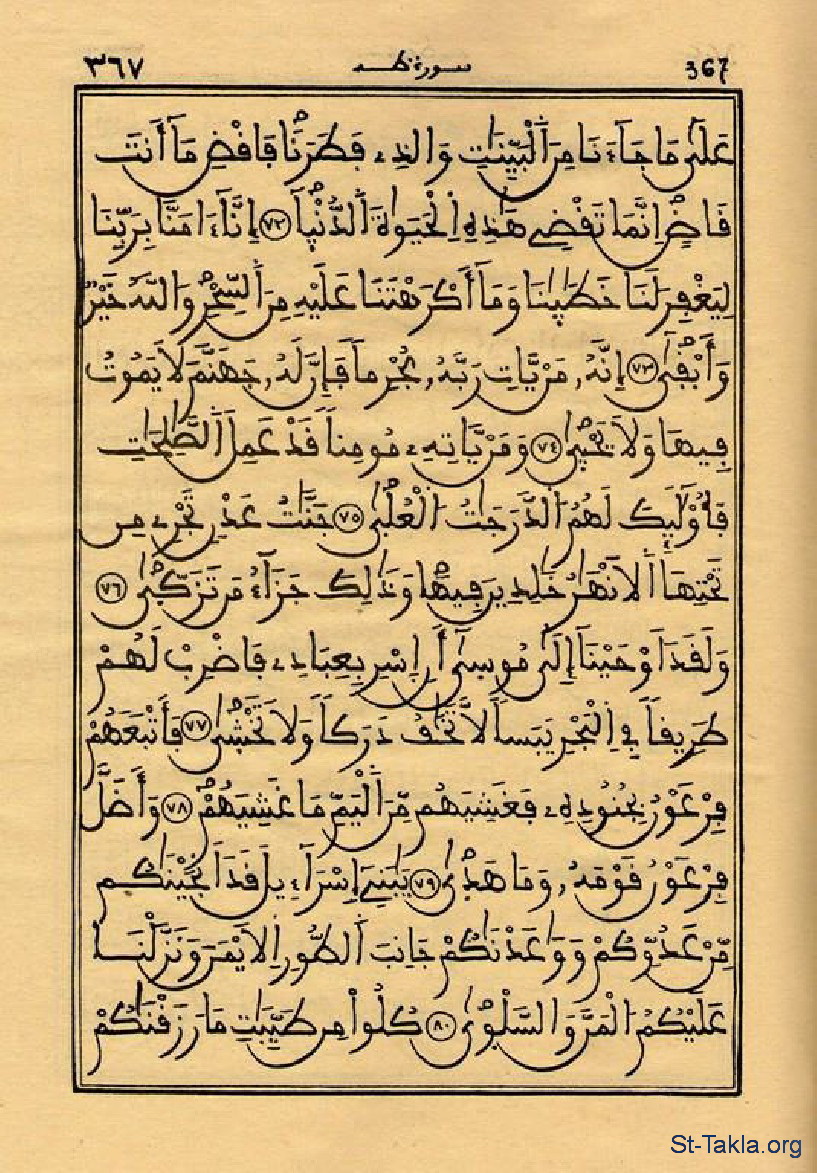 ٣٦٧ سورة طه 367
عَلَىٰ مَا جَآءَنَا مِنَ اَ۬لْبَيِّنَٰتِ وَالذِے فَطَرَنَا فَاقْضِ مَآ أَنتَ
قَاضٍ اِنَّمَا تَقْضِے هَٰذِهِ اِ۬لْحَيَوٰةَ اَ۬لدُّنْيَآ ٧٢ إِنَّآ ءَامَنَّا بِرَبِّنَا
لِيَغْفِرَ لَنَا خَطَٰيَٰنَا وَمَآ أَكْرَهْتَنَا عَلَيْهِ مِنَ اَ۬لسِّحْرِ وَاللَّهُ خَيْرٌ
وَأَبْقَىٰٓ ٧٣ إِنَّهُۥ مَنْ يَّاتِ رَبَّهُۥ مُجْرِماً فَإِنَّ لَهُۥ جَهَنَّمَ لَا يَمُوتُ
فِيهَا وَلَا يَحْيَىٰ ٧٤ وَمَنْ يَّاتِهِۦ مُومِناً قَدْ عَمِلَ اَ۬لصَّٰلِحَٰتِ
فَأُوْلَٰٓئِكَ لَهُمُ اُ۬لدَّرَجَٰتُ اُ۬لْعُلَىٰ ٧٥ جَنَّٰتُ عَدْنٍ تَجْرِے مِن
تَحْتِهَا اَ۬لَانْهَٰرُ خَٰلِدِينَ فِيهَا وَذَٰلِكَ جَزَآءُ مَن تَزَكَّىٰ ٧٦
وَلَقَدَ اَوْحَيْنَآ إِلَىٰ مُوسَىٰٓ أَنِ اِسْرِ بِعِبَادِے فَاضْرِبْ لَهُمْ
طَرِيقاً فِے اِ۬لْبَحْرِ يَبَساً لَّا تَخَٰفُ دَرَكاً وَلَا تَخْشَىٰ ٧٧ فَأَتْبَعَهُمْ
فِرْعَوْنُ بِجُنُودِهِۦ فَغَشِيَهُم مِّنَ اَ۬لْيَمِّ مَا غَشِيَهُمْ ٧٨ وَأَضَلَّ
فِرْعَوْنُ قَوْمَهُۥ وَمَا هَدَىٰ ٧٩ يَٰبَنِےٓ إِسْرَآءِيلَ قَدَ اَنجَيْنَٰكُم
مِّنْ عَدُوِّكُمْ وَوَٰعَدْنَٰكُمْ جَانِبَ اَ۬لطُّورِ اِ۬لَايْمَنَ وَنَزَّلْنَا
عَلَيْكُمُ اُ۬لْمَنَّ وَالسَّلْوَىٰ ٨٠ كُلُواْ مِن طَيِّبَٰتِ مَا رَزَقْنَٰكُمْ
St-Takla.org